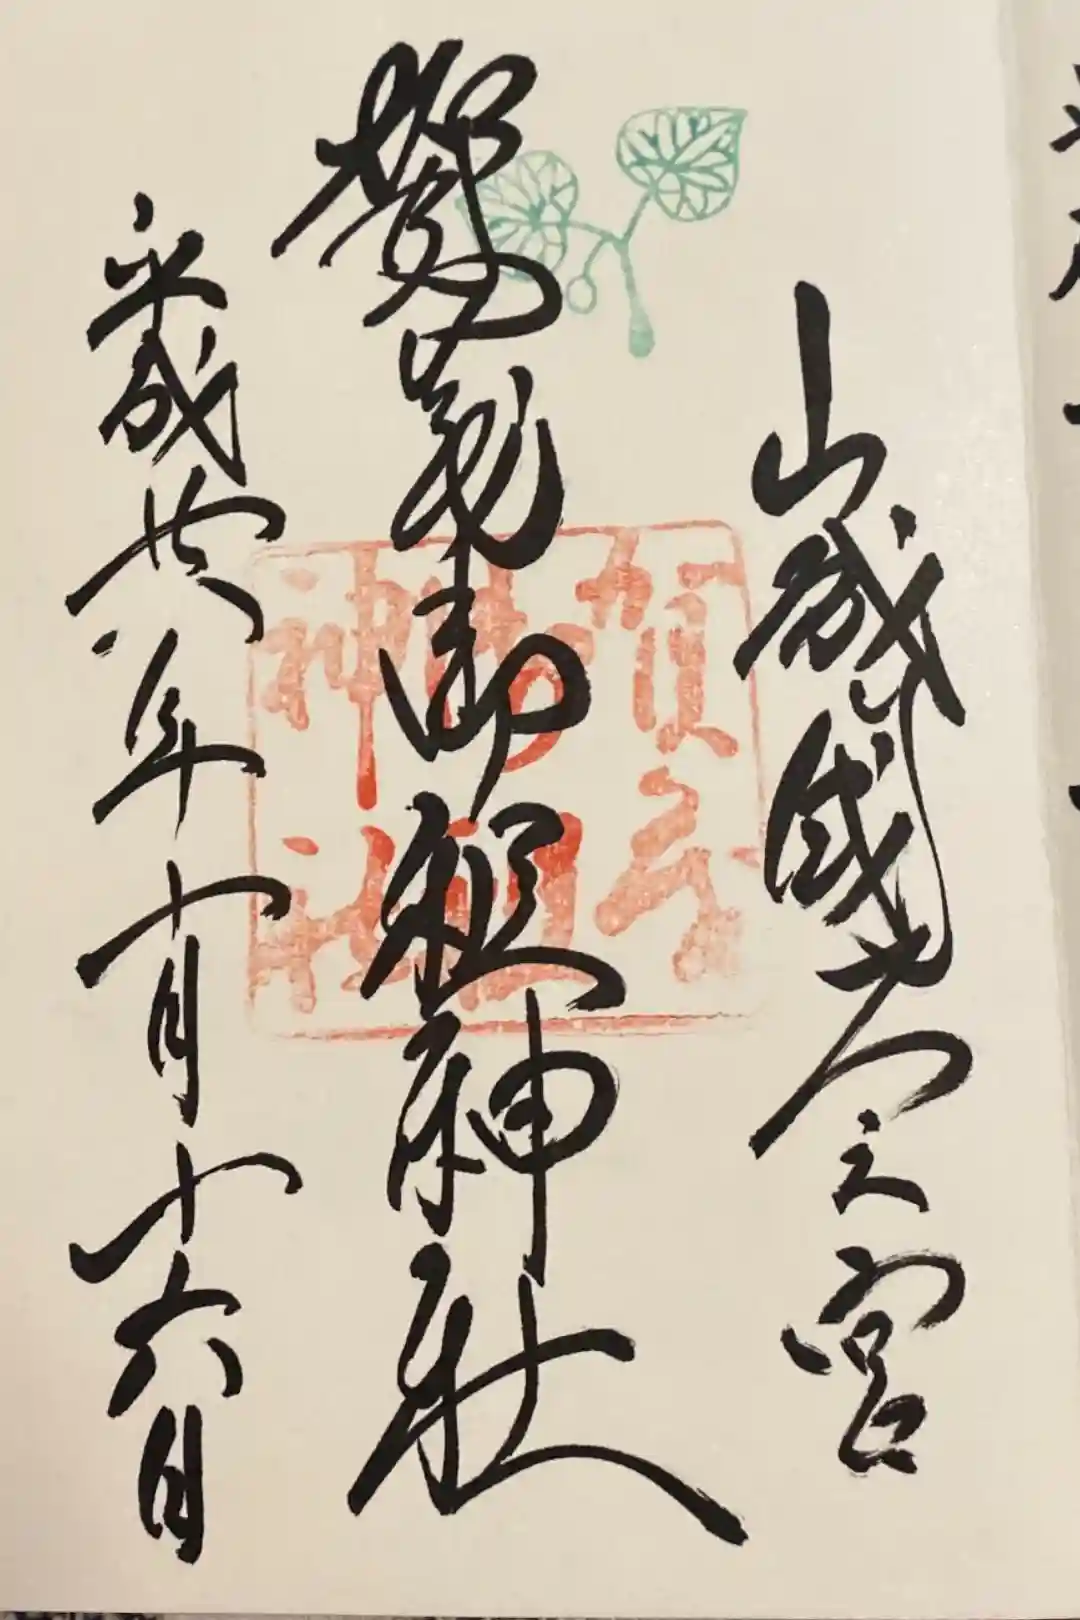 山城國一之宮
賀茂御祖神社
平成廿八年十月十六日
賀茂
御祖
神社